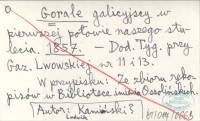 Gorale galicyjscy w
pierwszej połowie naszego stu-
lecia. 1857. — Dod. Tyg. przy
Gaz. Lwowskiej nr 11 i 13.
W przypisku: Ze zbioru ręko-
pisów w Bibliotece imienia Ossolińskich.
[Autor: Kamiński
Ludwik